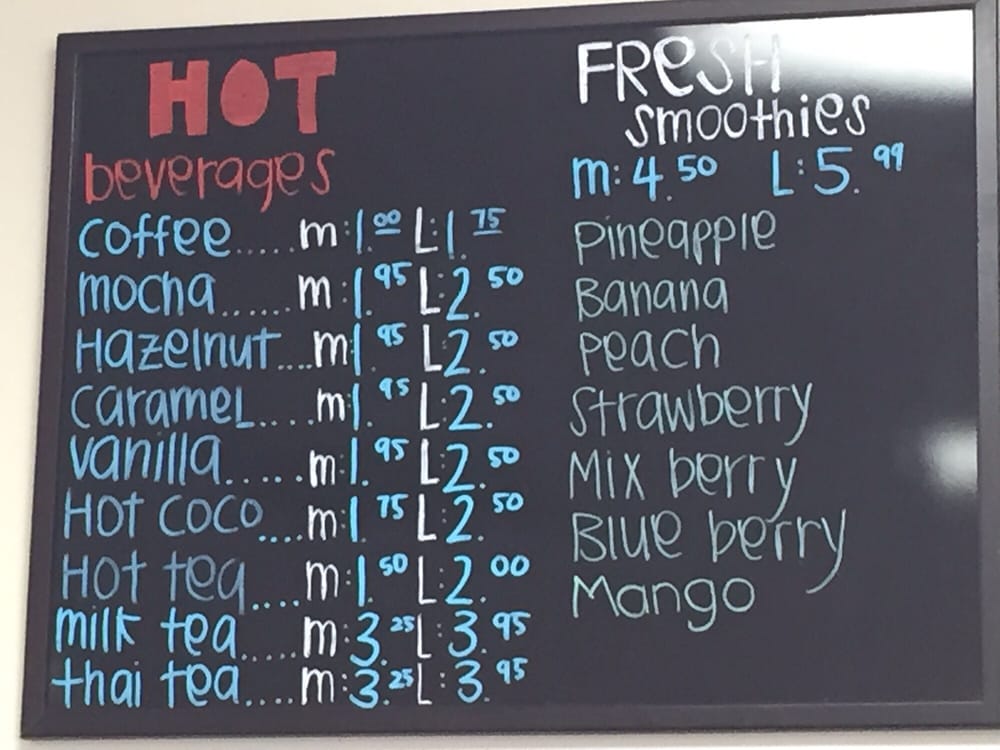 HOT
beverages
coffee.....m:1.00 L:1.75
mocha......m:1.95 L:2.50
Hazelnut....m:1.95 L:2.50
caramel....m:1.95 L:2.50
vanilla......m:1.95 L:2.50
Hot coco....m:1.75 L:2.50
Hot tea....m:1.50 L:2.00
milk tea.....m:3.25 L:3.95
thai tea....m:3.25 L:3.95
FResH
smoothies
m:4.50 L:5.99
Pineapple
Banana
peach
Strawberry
Mix berry
Blue berry
Mango